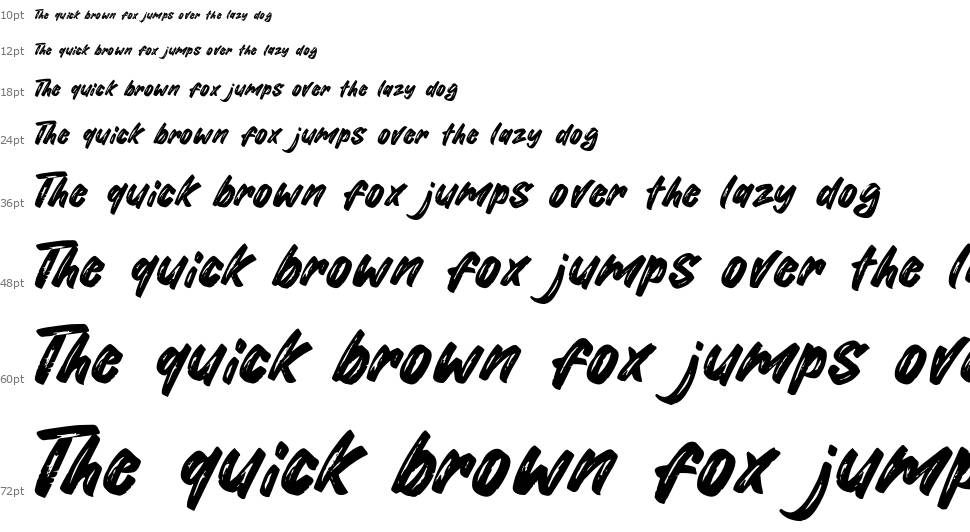 10pt The quick brown fox jumps over the lazy dog
12pt The quick brown fox jumps over the lazy dog
18pt The quick brown fox jumps over the lazy dog
24pt The quick brown fox jumps over the lazy dog
36pt The quick brown fox jumps over the lazy dog
48pt The quick brown fox jumps over the l
60pt The quick brown fox jumps ov
72pt The quick brown fox jump